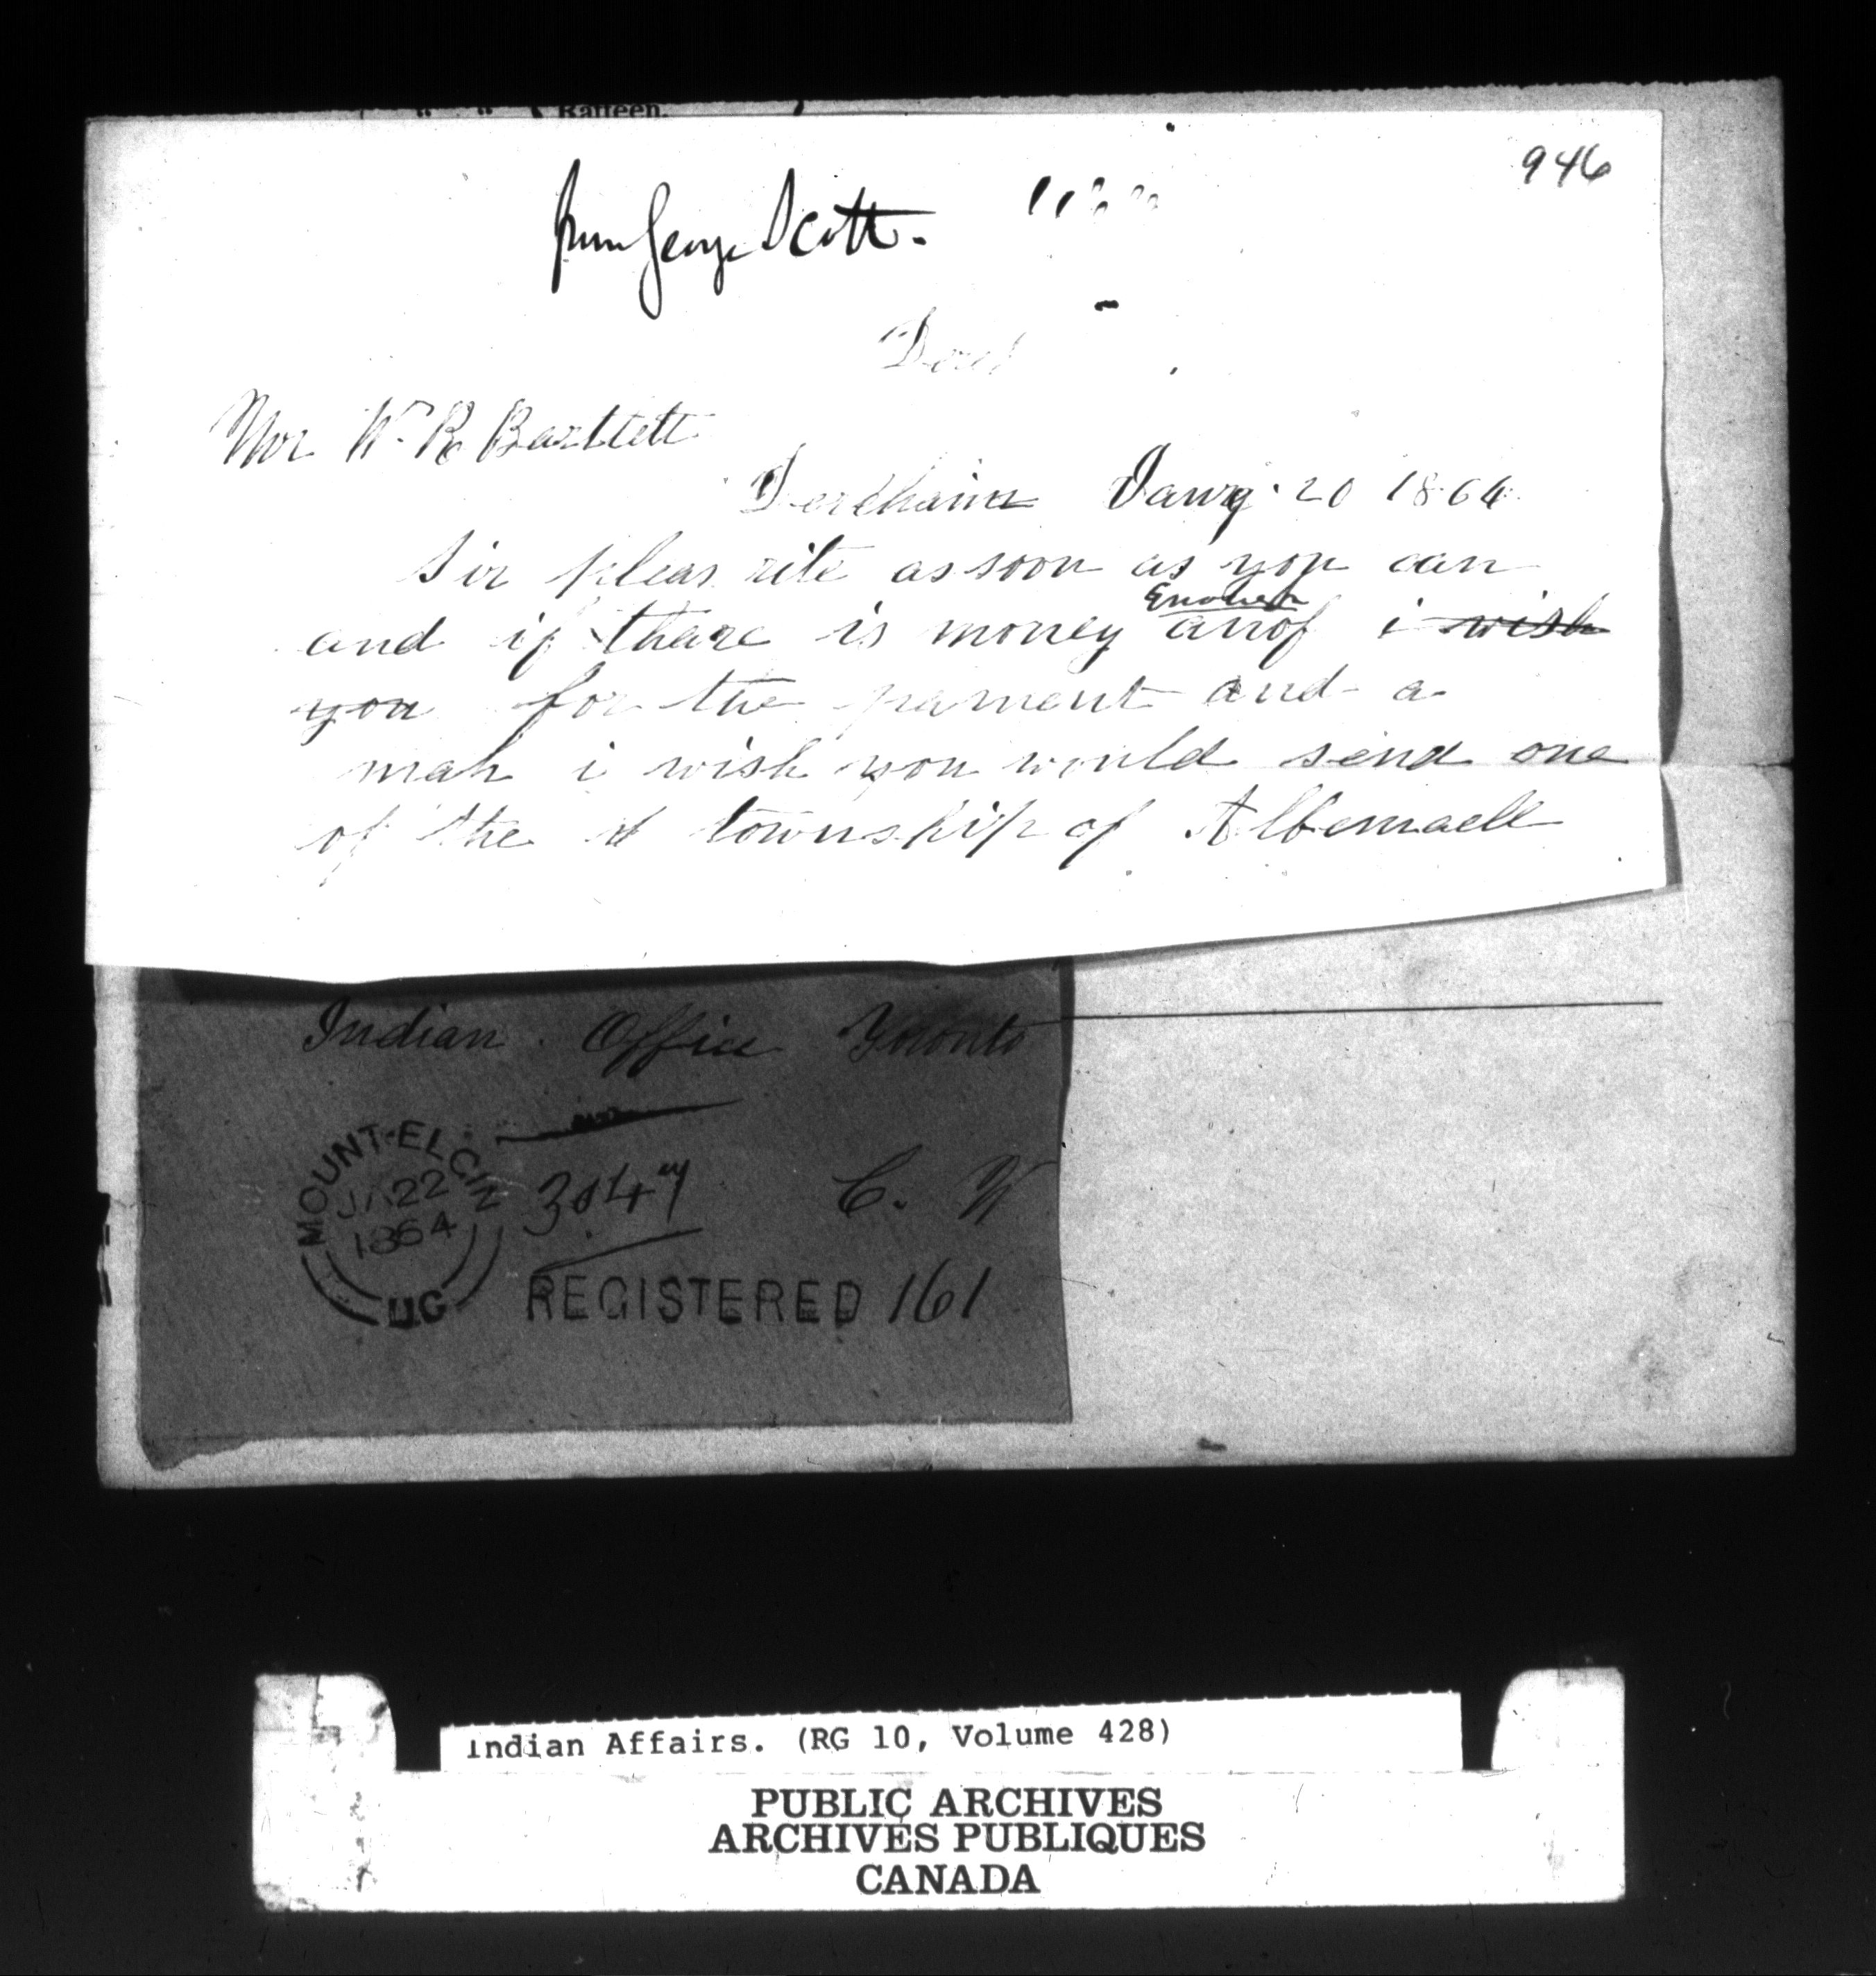 Ratteen.
946
from George Scott.
Mr Wm R Bartlett
Derehaim Jany. 20 1864
Sir pleas rite as soon as you can
Enough
and if theare is money anof i wish
you for the pament and a
map i wish you would send one
of the township of Albemaell
Indian Office Toronto
MOUNT-ELGIN
JA 22
1864
U.C
C. W
REGISTERED 161
Indian Affairs. (RG 10, Volume 428)
PUBLIC ARCHIVES
ARCHIVES PUBLIQUES
CANADA